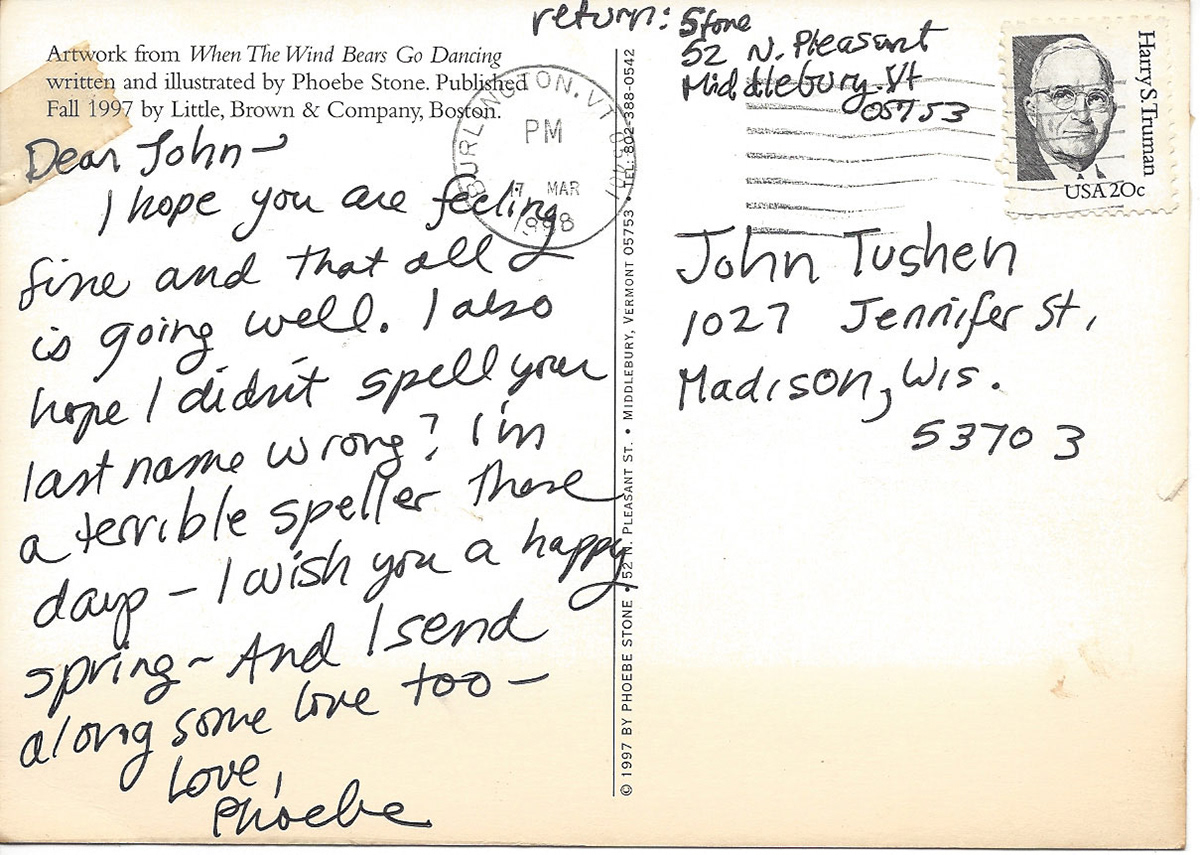 Artwork from When The Wind Bears Go Dancing
written and illustrated by Phoebe Stone. Published
Fall 1997 by Little, Brown & Company, Boston.
Dear John –
I hope you are feeling
fine and that all
is going well. I also
hope I didn't spell your
last name wrong? I'm
a terrible speller these
days – I wish you a happy
spring ~ And I send
along some love too –
Love,
Phoebe
BURLINGTON, VT
PM
17 MAR
1998
© 1997 BY PHOEBE STONE • 52 N. PLEASANT ST. • MIDDLEBURY, VERMONT 05753 • TEL: 802-388-0542
return: Stone
52 N. Pleasant
Middlebury. Vt
05753
Harry S. Truman
USA 20c
John Tushen
1027 Jennifer St,
Madison, Wis.
53703